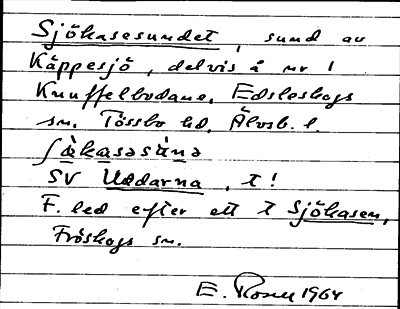 Sjökasesundet, sund av
Käppesjö, delvis å nr 1
Knuffelbodane, Edsleskogs
sn. Tössbo hd, Älvsb. l.
ʃö̀kasəsúnə
SV Uddarna, t!
F. led efter ett † Sjökasen,
Fröskogs sn.
E. Rosell 1964